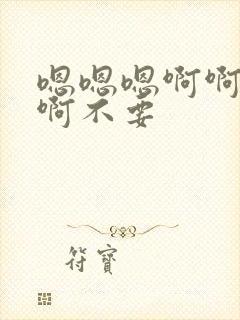 嗯嗯嗯啊啊
啊不要
符寶